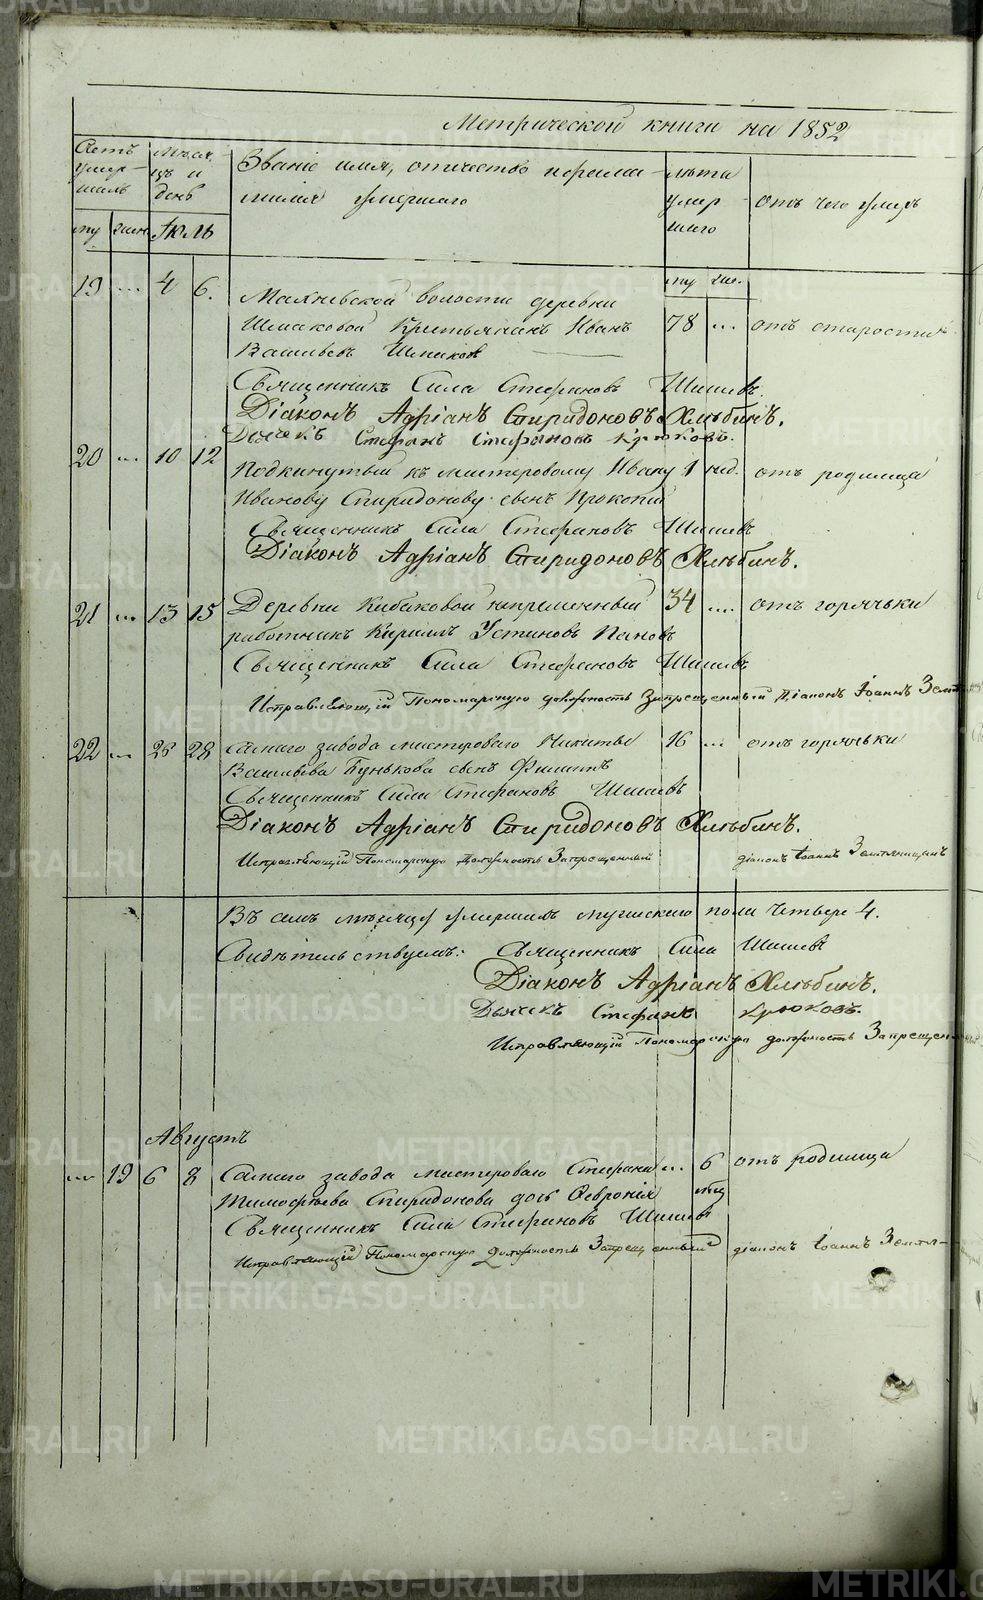 Метрической книги на 1852
Счетъ умер- шихъ
Мѣся- цъ и день
Званіе имя, отчество и фами- лія умершаго
лѣта умер шаго
отъ чего умеръ
му жен Іюль
му жен.
19 ... 4 6.
Махневской волости деревни
Шмаковой Крестьянинъ Иванъ 78 ... отъ старости
Васильевъ Шмаковъ
Священникъ Сила Стефановъ Шишевъ.
Діаконъ Адріанъ Спиридоновъ Хлѣбинъ.
Дьячекъ Стефанъ Стефановъ Крюковъ.
20 ... 10 12
Подкинутый къ мастеровому Ивану 1 нед. отъ родимца
Иванову Спиридонову сынъ Прокопій
Священникъ Сила Стефановъ Шишевъ
Діаконъ Адріанъ Спиридоновъ Хлѣбинъ.
21 ... 13 15 Деревни Кибаковой непременный 34 ... отъ горячьки
работникъ Кирилъ Устиновъ Пановъ
Священникъ Сила Стефановъ Шишевъ
Исправляющій Пономарскую должность Запрещенный діаконъ Іоаннъ
22 ... 26 28 Самаго завода мастероваго Никиты 16 ... отъ горячьки
Васильева Пунькова сынъ Филиппъ
Священникъ Сила Стефановъ Шишевъ
Діаконъ Адріанъ Спиридоновъ Хлѣбинъ.
Исправляющій Пономарскую Должность Запрещенный діаконъ Іоаннъ Земляницынъ
Въ семъ мѣсяцѣ умершихъ мужескаго пола четверо 4.
Свидѣтельствуемъ: Священникъ Сила Шишевъ
Діаконъ Адріанъ Хлѣбинъ.
Дьячекъ Стефанъ Крюковъ.
Исправляющій Пономарскую должность
Августъ
... 19 6 8 Самаго завода мастероваго Стефана ... 6 отъ родимца
Тимофѣева Спиридонова дочь Февронія мѣс
Священникъ Сила Стефановъ Шишевъ
Исправляющій Пономарскую Должность Запрещенный діаконъ Іоаннъ Земля-
METRIKI.GASO-URAL.RU